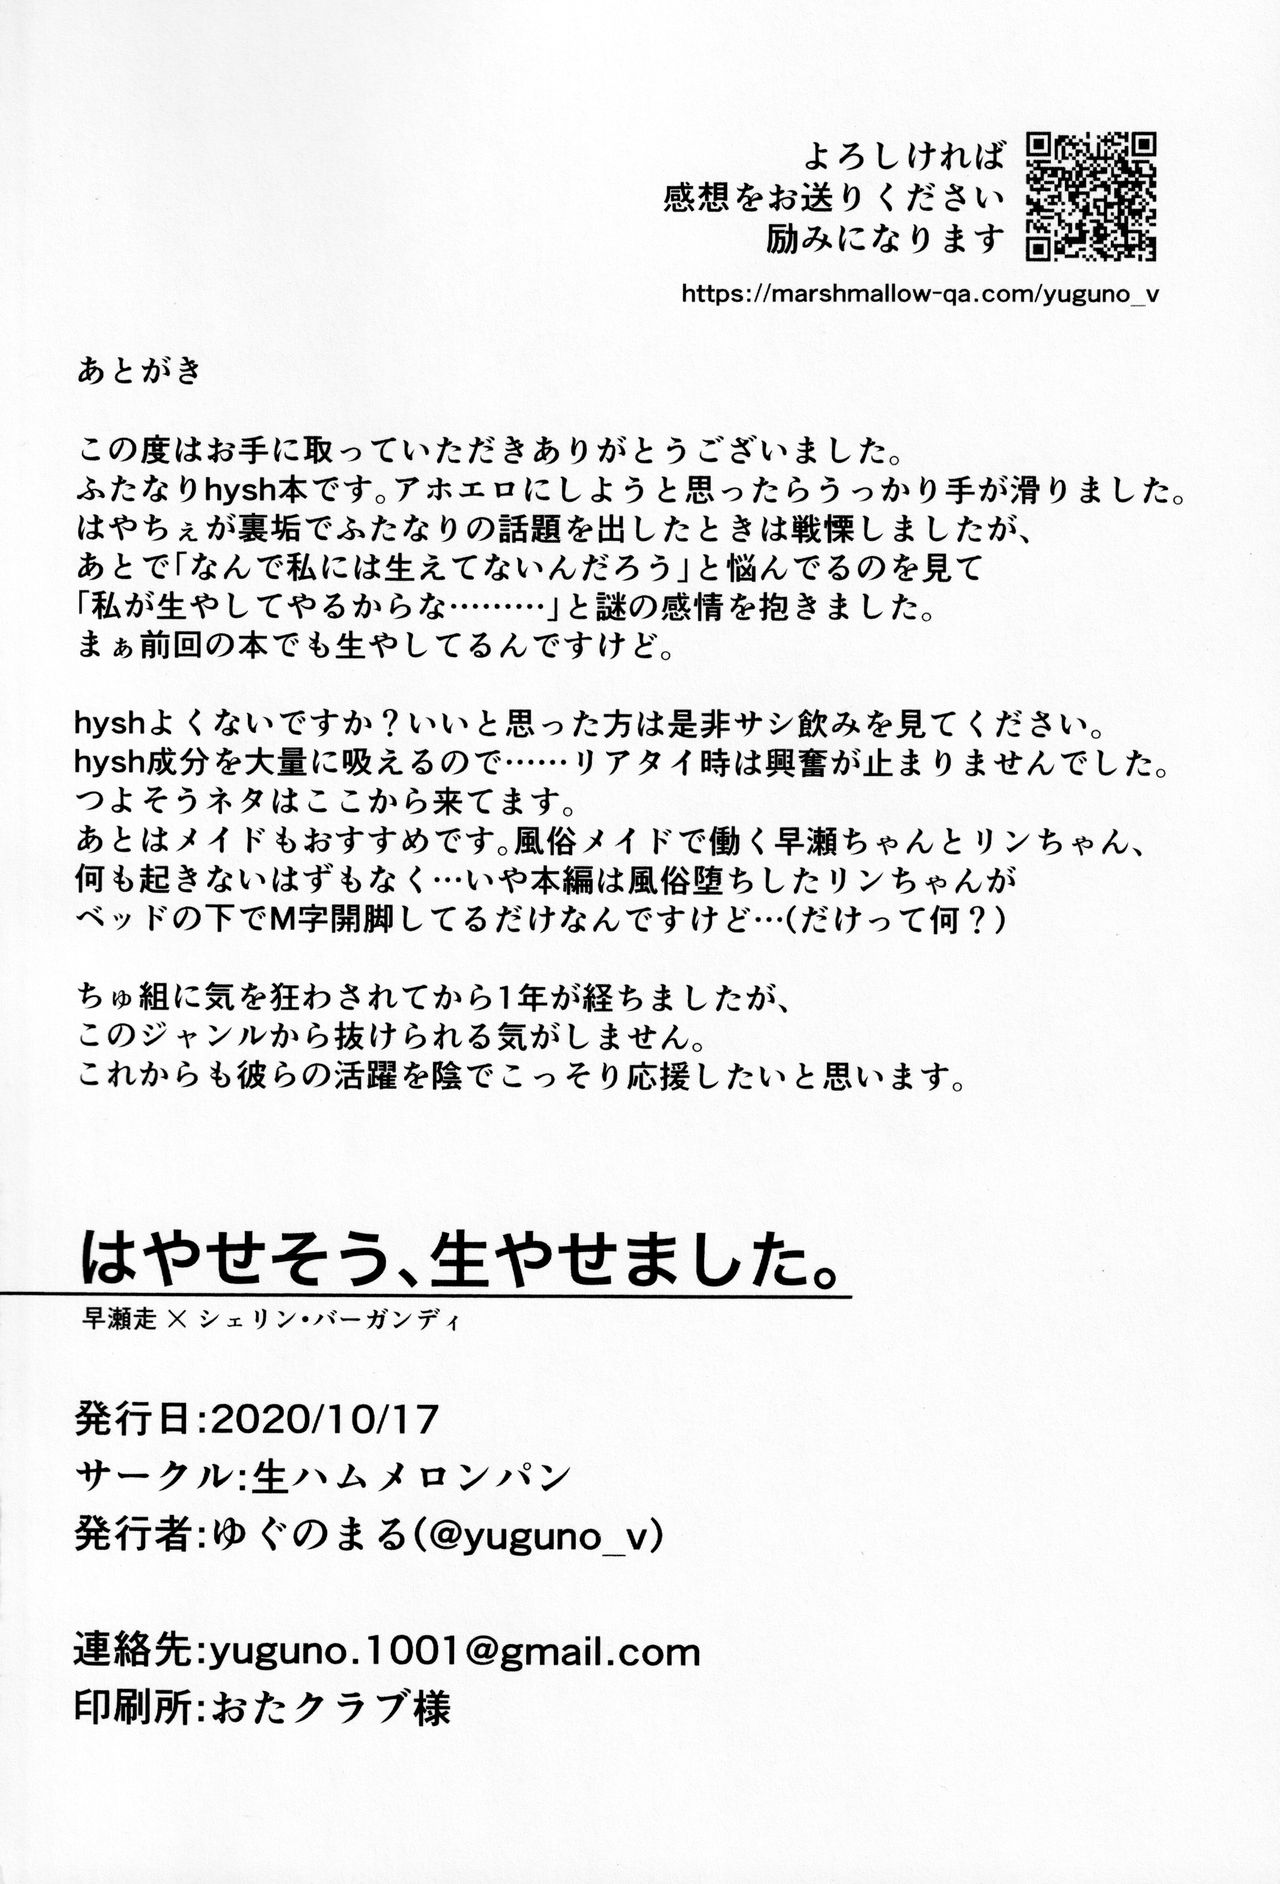 よろしければ
感想をお送りください
励みになります
https://marshmallow-qa.com/yuguno_v
あとがき
この度はお手に取っていただきありがとうございました。
ふたなりhysh本です。アホエロにしようと思ったらうっかり手が滑りました。
はやちぇが裏垢でふたなりの話題を出したときは戦慄しましたが、
あとで「なんで私には生えてないんだろう」と悩んでるのを見て
「私が生やしてやるからな………」と謎の感情を抱きました。
まぁ前回の本でも生やしてるんですけど。
hyshよくないですか？いいと思った方は是非サシ飲みを見てください。
hysh成分を大量に吸えるので……リアタイ時は興奮が止まりませんでした。
つよそうネタはここから来てます。
あとはメイドもおすすめです。風俗メイドで働く早瀬ちゃんとリンちゃん、
何も起きないはずもなく…いや本編は風俗堕ちしたリンちゃんが
ベッドの下でM字開脚してるだけなんですけど…(だけって何？)
ちゅ組に気を狂わされてから1年が経ちましたが、
このジャンルから抜けられる気がしません。
これからも彼らの活躍を陰でこっそり応援したいと思います。
はやせそう、生やせました。
早瀬走×シェリン・バーガンディ
発行日:2020/10/17
サークル:生ハムメロンパン
発行者:ゆぐのまる(@yuguno_v)
連絡先:yuguno.1001@gmail.com
印刷所:おたクラブ様